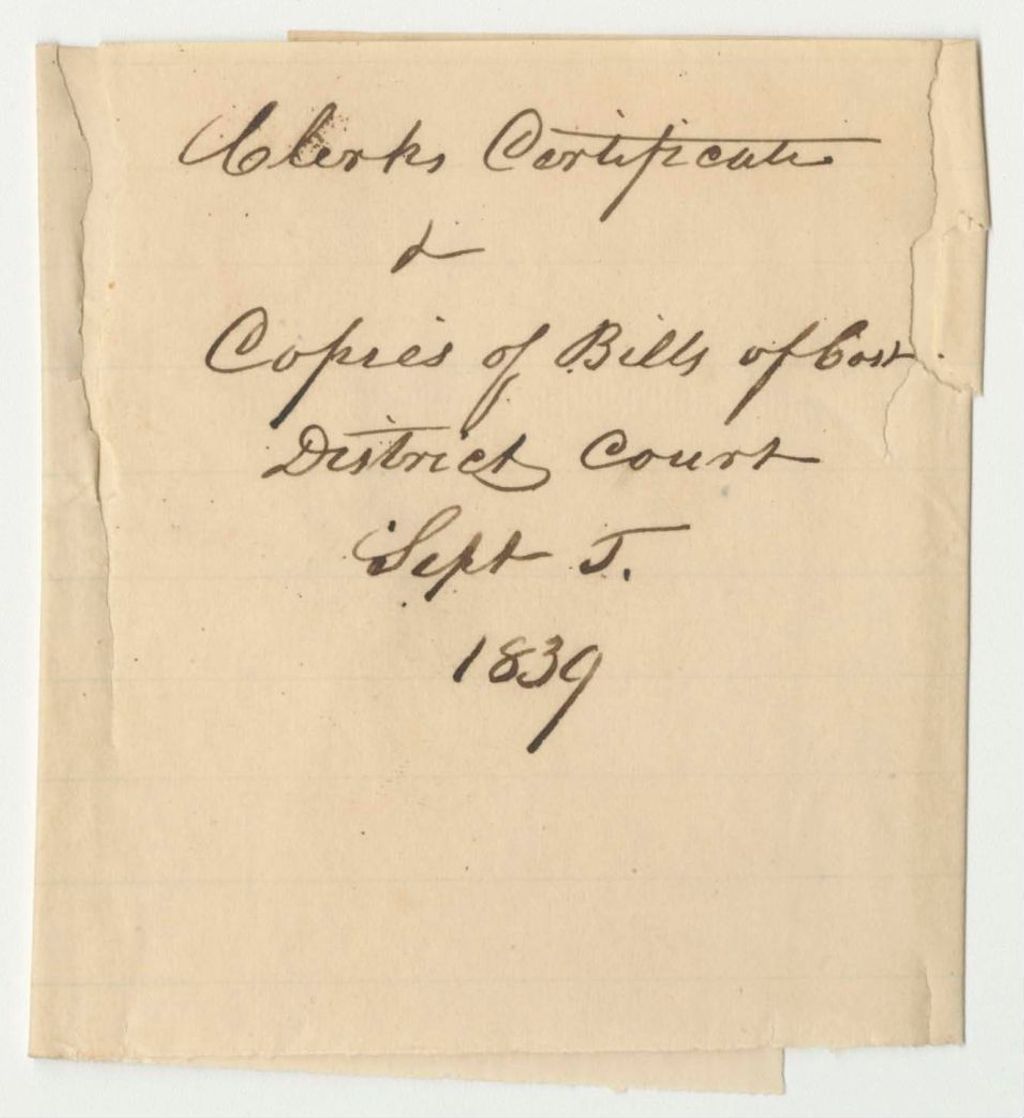 Clerks Certificate
&
Copies of Bills of Cost
District Court
Sept T.
1839